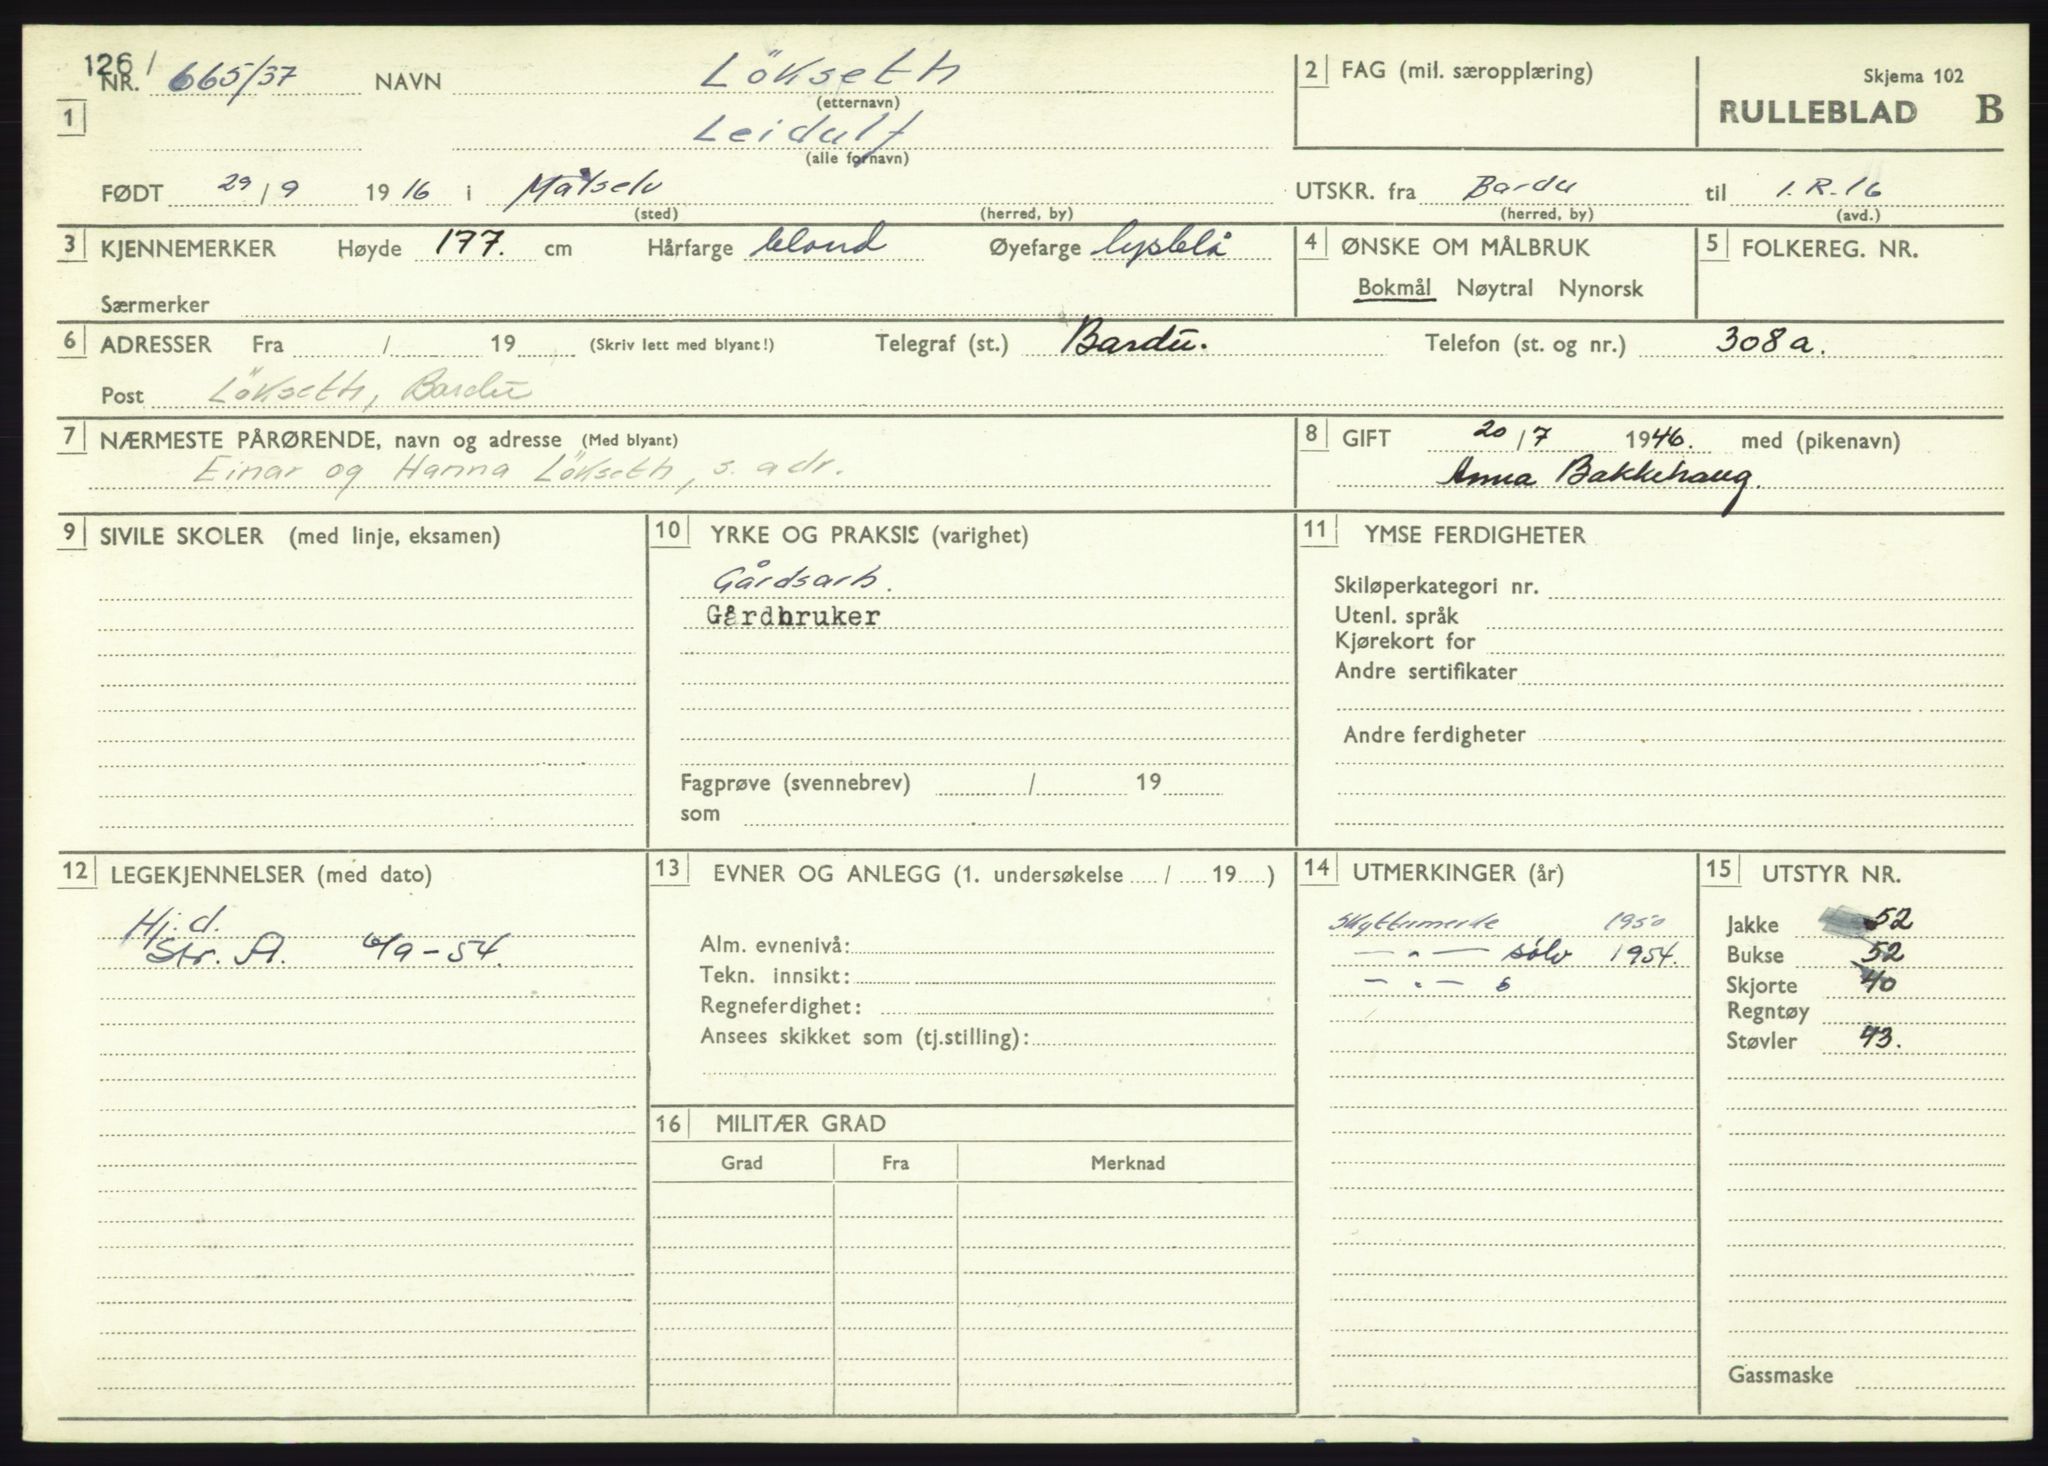 126/
NR. 665/37 NAVN Lökseth
(etternavn)
1 Leidulf
(alle fornavn)
2 FAG (mil. særopplæring)
Skjema 102
RULLEBLAD B
FØDT 29/9 1916 i Målselv
(sted) (herred, by)
UTSKR. fra Bardu til I.R.16
(herred, by) (avd.)
3 KJENNEMERKER Høyde 177. cm Hårfarge blond Øyefarge lysblå
Særmerker
4 ØNSKE OM MÅLBRUK
Bokmål Nøytral Nynorsk
5 FOLKEREG. NR.
6 ADRESSER Fra / 19 (Skriv lett med blyant!) Telegraf (st.) Bardu. Telefon (st. og nr.) 308a.
Post Lökseth, Bardu
7 NÆRMESTE PÅRØRENDE, navn og adresse (Med blyant)
Einar og Hanna Lökseth, s. adr.
8 GIFT 20/7 1946. med (pikenavn)
Anna Bakkehaug.
9 SIVILE SKOLER (med linje, eksamen)
10 YRKE OG PRAKSIS (varighet)
Gårdsarb.
Gårdbruker
Fagprøve (svennebrev) / 19
som
11 YMSE FERDIGHETER
Skiløperkategori nr.
Utenl. språk
Kjørekort for
Andre sertifikater
Andre ferdigheter
12 LEGEKJENNELSER (med dato)
Hj.d.
Str. A. 6/9-54.
13 EVNER OG ANLEGG (1. undersøkelse / 19 )
Alm. evnenivå:
Tekn. innsikt:
Regneferdighet:
Ansees skikket som (tj.stilling):
16 MILITÆR GRAD
Grad Fra Merknad
14 UTMERKINGER (år)
Skyttermerke 1950
— " — sølv 1954.
— " —
15 UTSTYR NR.
Jakke 52
Bukse 52
Skjorte 40
Regntøy
Støvler 43.
Gassmaske